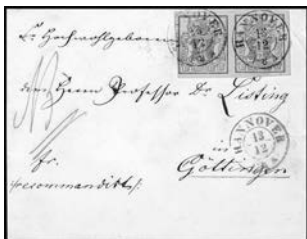 HANNOVER
13
12
HANNOVER
13
12
Sr. Hochwohlgeboren
dem Herrn Professor Dr. Listing
HANNOVER
13
12
in
fr.
Göttingen
recommandirt